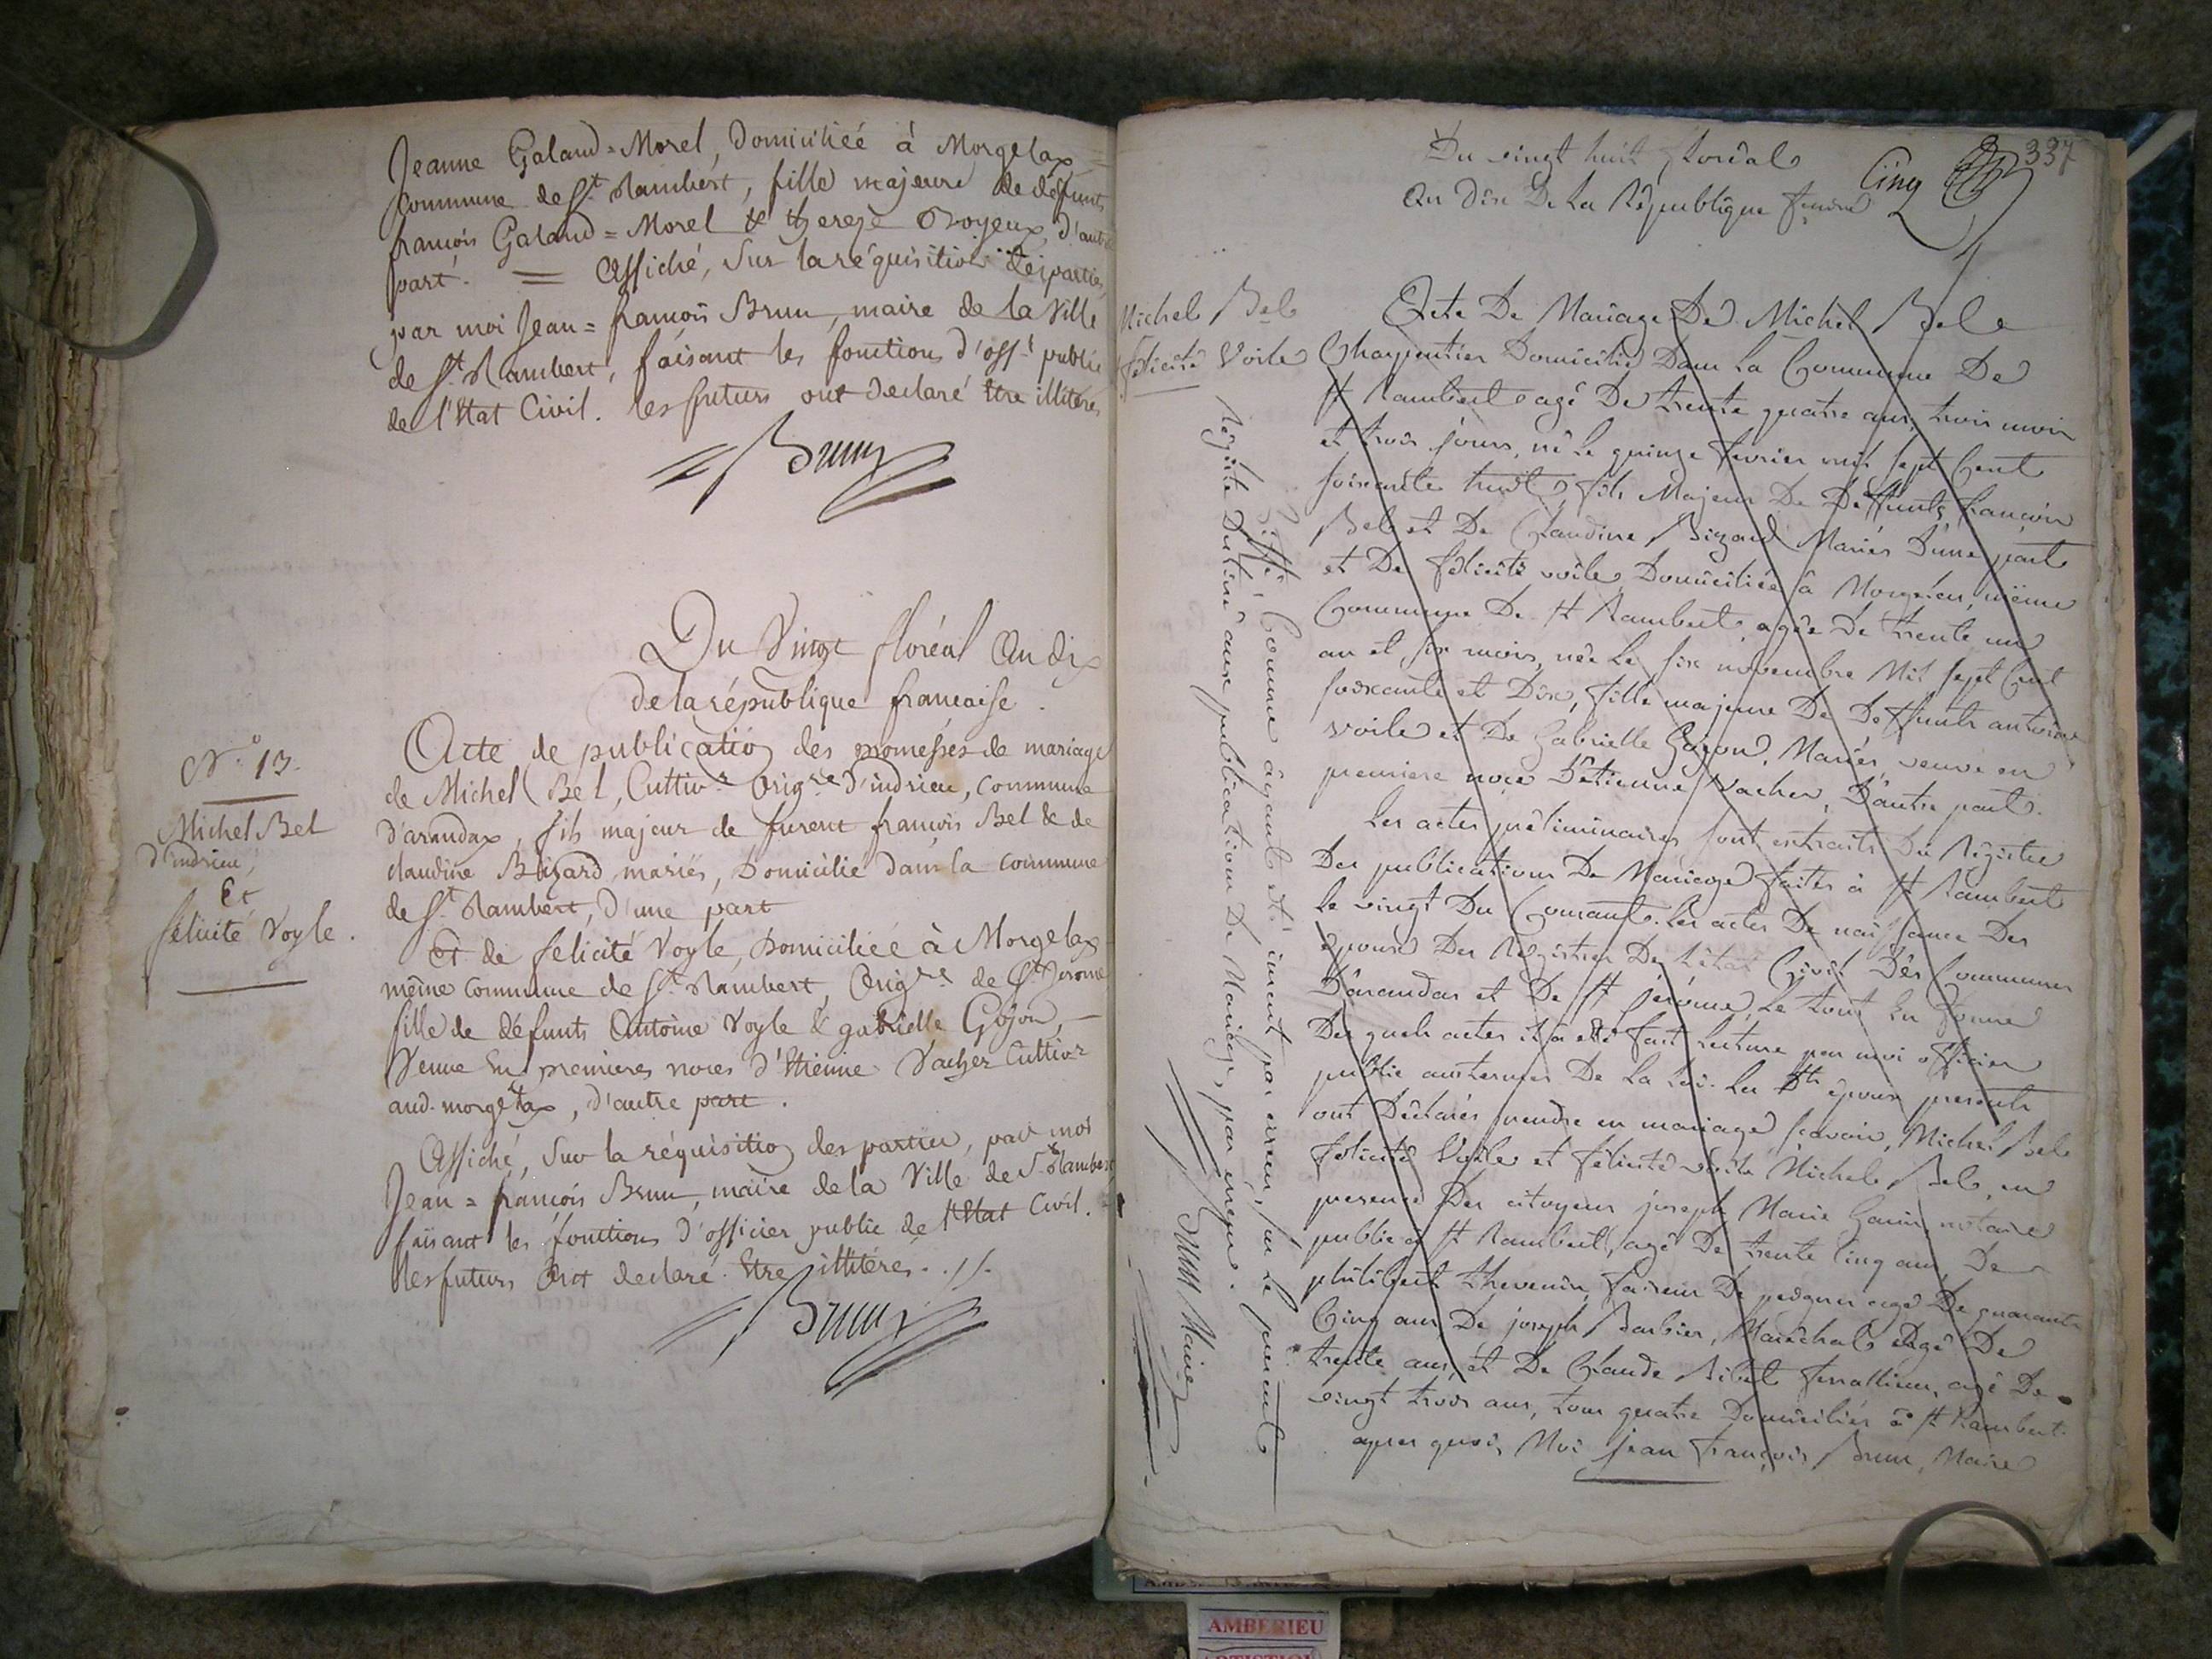 Jeanne Galand=Morel, Domiciliée à Morgelax
commune de St. Rambert, fille majeure de défunts
françois Galand=Morel &thereze Broyeux, d'autre
part. = Affiché, Sur la réquisition des parties,
par moi Jean=françois Brun, maire de la Ville
de St. Rambert, faisant les fonctions d'offr. public
de l'Etat Civil. les futurs ont declaré Etre illiterés
Brun
Du Vingt floréal An dix
de la république francaise.
N.o 13.
Michel Bel
d'indrieu,
Et
félicité Voyle.
Acte de publication des promesses de mariage
de Michel Bel, Cultivr. Origre. d'indrieu, commune
d'arandax, fils majeur de furent françois Bel & de
claudine Bizard mariés, Domicilié dans la commune
de St. Rambert, d'une part
Et de félicité Voyle, Domiciliée à Morgelax
même commune de St. Rambert, Origre. de St. Jerome
fille de défunts Antoine Voyle & gabrielle Gojon,
Veuve En premieres noces d'Etienne Vacher Cultivr
aud. morgelax, d'autre part.
Affiché, Sur la réquisition des parties, par moi
Jean=françois Brun, maire de la Ville de St. Rambert,
faisant les fonctions d'officier public de l'Etat Civil.
les futurs ont declaré Etre illiterés. ./.
Brun
337
Du vingt huit floréal
An Dix De La République
Cinq
Michel Bel
félicité Voile
Acte De Mariage De Michel Bel
Charpentier Domicilié Dans La Commune De
St Rambert agé De trente quatre ans, trois mois
et trois jours, né Le quinze fevrier mil sept Cent
soixante huit, fils Majeur De Deffunts françois
Bel et De Claudine Bizard Mariés D'une part
et De félicité voile Domiciliée à Morgelas, même
Commune De St Rambert, agée De trente un
an et six mois, née Le six novembre Mil sept Cent
soixante et Dix, fille majeure De Deffunts antoine
voile et De Gabrielle Gojon, Mariés, veuve en
premiere noce D'Etienne Vacher, D'autre part.
Les actes préliminaires sont extraits Du Régistre
Des publications De Mariage faites à St Rambert
Le vingt Du Courant. Les actes De naissance Des
époux Des Régistres De L'état Civil Des Communes
D'arandas et De St jerôme, Le tout En forme
Des quels actes il a été fait Lecture par moi officier
public aux termes De La Loi. Les dts époux presents
ont Déclarés prendre en mariage, sçavoir, Michel Bel
félicité Voile et félicité voile Michel Bel, en
presence Des citoyens joseph Marie Gavin notaire
public à St Rambert, agé De trente Cinq ans, De
philibert thevenin, faiseur De peignes agé De quarante
Cinq ans, De joseph Barbier, Maréchal agé De
trente ans, et De Claude Sibet, agé De
vingt trois ans, tous quatre Domiciliés à St Rambert.
après quoi, Moi jean françois Brun, Maire
Biffé, Comme ayant été inscrit par erreur, sur Le present
Régistre Destiné aux publications De Mariage, par erreur.
Brun Maire
AMBERIEU